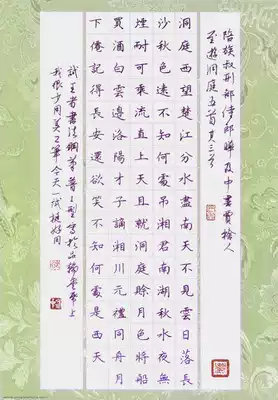 陪族叔刑部侍郎曄及中書賈舍人
至遊洞庭五首其三首
洞庭西望楚江分水盡南天不見雲日落長
沙秋色遠不知何處吊湘君南湖秋水夜無
煙耐可乘流直上天且就洞庭賒月色將船
買酒白雲邊洛陽才子謫湘川元禮同舟月
下僊記得長安還欲笑不知何處是西天
試王者書法鋼筆
我很少用美工筆今天一試挺好用